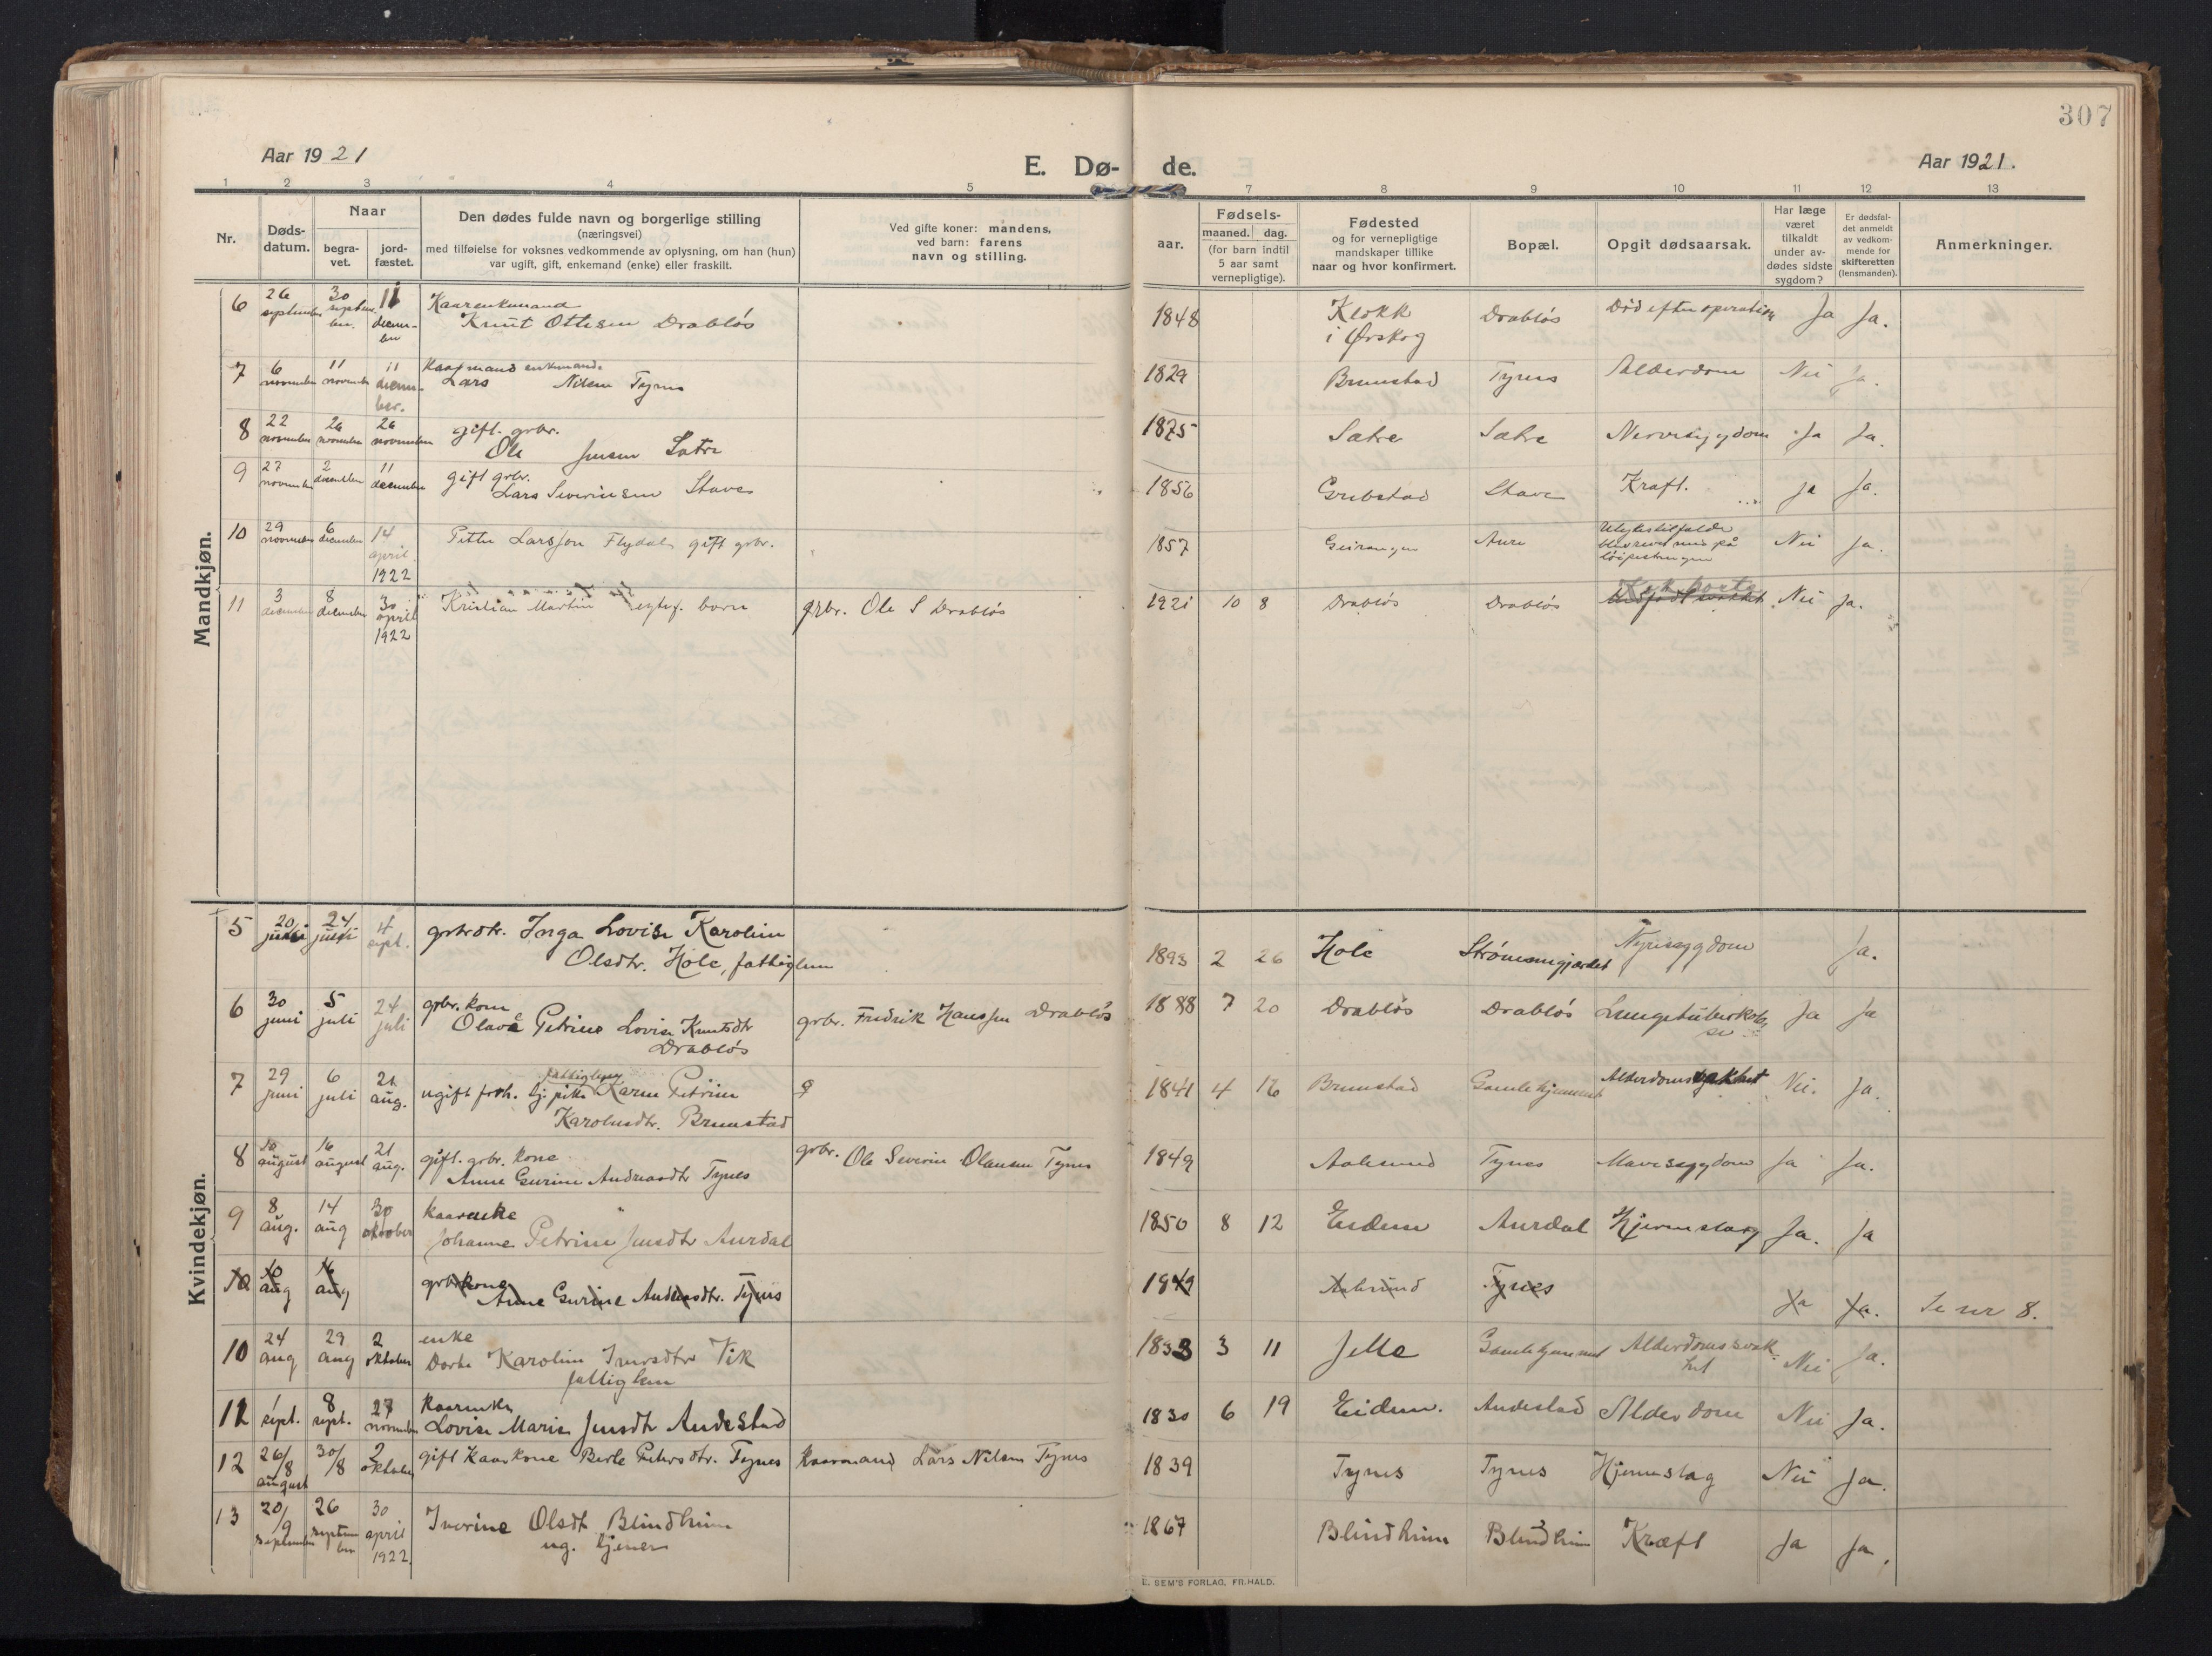 307
Aar 1921
E. Dø- de.
Aar 1921.
1 2 3 4 5 7 8 9 10 11 12 13
Nr.
Døds-
datum.
Naar
begra-
vet.
jord-
fæstet.
Den dødes fulde navn og borgerlige stilling
(næringsvei)
med tilføielse for voksnes vedkommende av oplysning, om han (hun)
var ugift, gift, enkemand (enke) eller fraskilt.
Ved gifte koner: mandens,
ved barn: farens
navn og stilling.
aar.
Fødsels-
maaned. dag.
(for barn indtil
5 aar samt
vernepligtige).
Fødested
og for vernepligtige
mandskaper tillike
naar og hvor konfirmert.
Bopæl.
Opgit dødsaarsak.
Har læge
været
tilkaldt
under av-
dødes sidste
sygdom?
Er dødsfal-
det anmeldt
av vedkom-
mende for
skifteretten
(lensmanden).
Anmerkninger.
Mandkjøn.
6 26 september 30 septem-
ber. 11 decem-
ber
Kaarenkemand
Knut Ottesen Drabløs
1848 Klokk
i Ørskog Drabløs Død efter operation Ja Ja.
7 6 november 11 november 11 decem-
ber.
Kaarmand enkemand
Lars Nilsen Tynes
1829 Brunstad Tynes Alderdom Nei Ja.
8 22 november 26 november 26 november
gift. grbr.
Ole Jensen Satre
1875 Satre Satre Nervesygdom Ja Ja.
9 27 november 2 december 11 december
gift grbr.
Lars Severinsen Stave
1856 Grebstad Stave Kræft. Ja Ja.
10 29 november 6 december 14
april
1922
Petter Larssen Flydal gift grbr.
1857 Geiranger Aure Ulykestilfælde
blev revet med på
løipestrengen Nei Ja.
11 3 december 8 december 30
april
1922
Kristian Martin egtef. barn grbr. Ole S Drabløs
1921 10 8 Drabløs Drabløs Kikhoste Nei Ja.
Kvindekjøn.
5 20/ juni 24/ juni 4
sept.
grbrdtr. Inga Lovise Karoline
Olsdtr. Hole, fattiglem
1893 2 26 Hole Strømmegjærdet Nyresygdom Ja.
6 30 juni 5 juli 24 juli
grbr. kone
Olava Petrine Lovise Knutsdtr
Drabløs
grbr. Fredrik Hanssen Drabløs
1888 7 20 Drabløs Drabløs Lungetuberkolo-
se Ja Ja
7 29 juni 6 juli 21 aug.
fattiglem
ugift forh. tj. pike Karen Petrine
Karolusdtr. Brunstad
1841 4 16 Brunstad Gamlehjemmet Alderdomssvakhet Nei. Ja.
8 10 august 16 august 21 aug.
gift. grbr. kone
Anne Gurine Andreasdtr Tynes
grbr. Ole Severin Olausen Tynes
1849 Aalesund Tynes Mavesygdom Ja Ja.
9 8 aug. 14 aug 30 oktober
kaarenke
Johanne Petrine Jensdtr Aurdal
1850 8 12 Eidem Aurdal Hjerneslag Ja. Ja
10 10 aug 16 aug
grbr kone
Anne Gurine Andreasdtr. Tynes
1849 Aalesund Tynes Ja Ja. Se nr 8.
10 24 aug 29 aug 2 oktober
enke
Dorte Karoline Iversdtr Vik
fattiglem
1833 3 11 Jelle Gamlehjemmet Alderdomssvak-
het Nei Ja.
11 1 sept. 8 sept. 27 november
Kaarenke
Lovise Marie Jensdtr Andestad
1830 6 19 Eidem. Andestad Alderdom Nei Ja.
12 26/8 august 30/8 2 oktober
gift Kaarkone Berte Petersdtr. Tynes Kaarmand Lars Nilsen Tynes
1839 Tynes Tynes Hjerneslag Nei Ja.
13 20/9 september 26 septem
ber 30
april
1922.
Iverine Olsdt Blindheim
ug. tjener
1867 Blindheim Blindheim Kræft Ja Ja.
E. SEM'S FORLAG, FR.HALD.